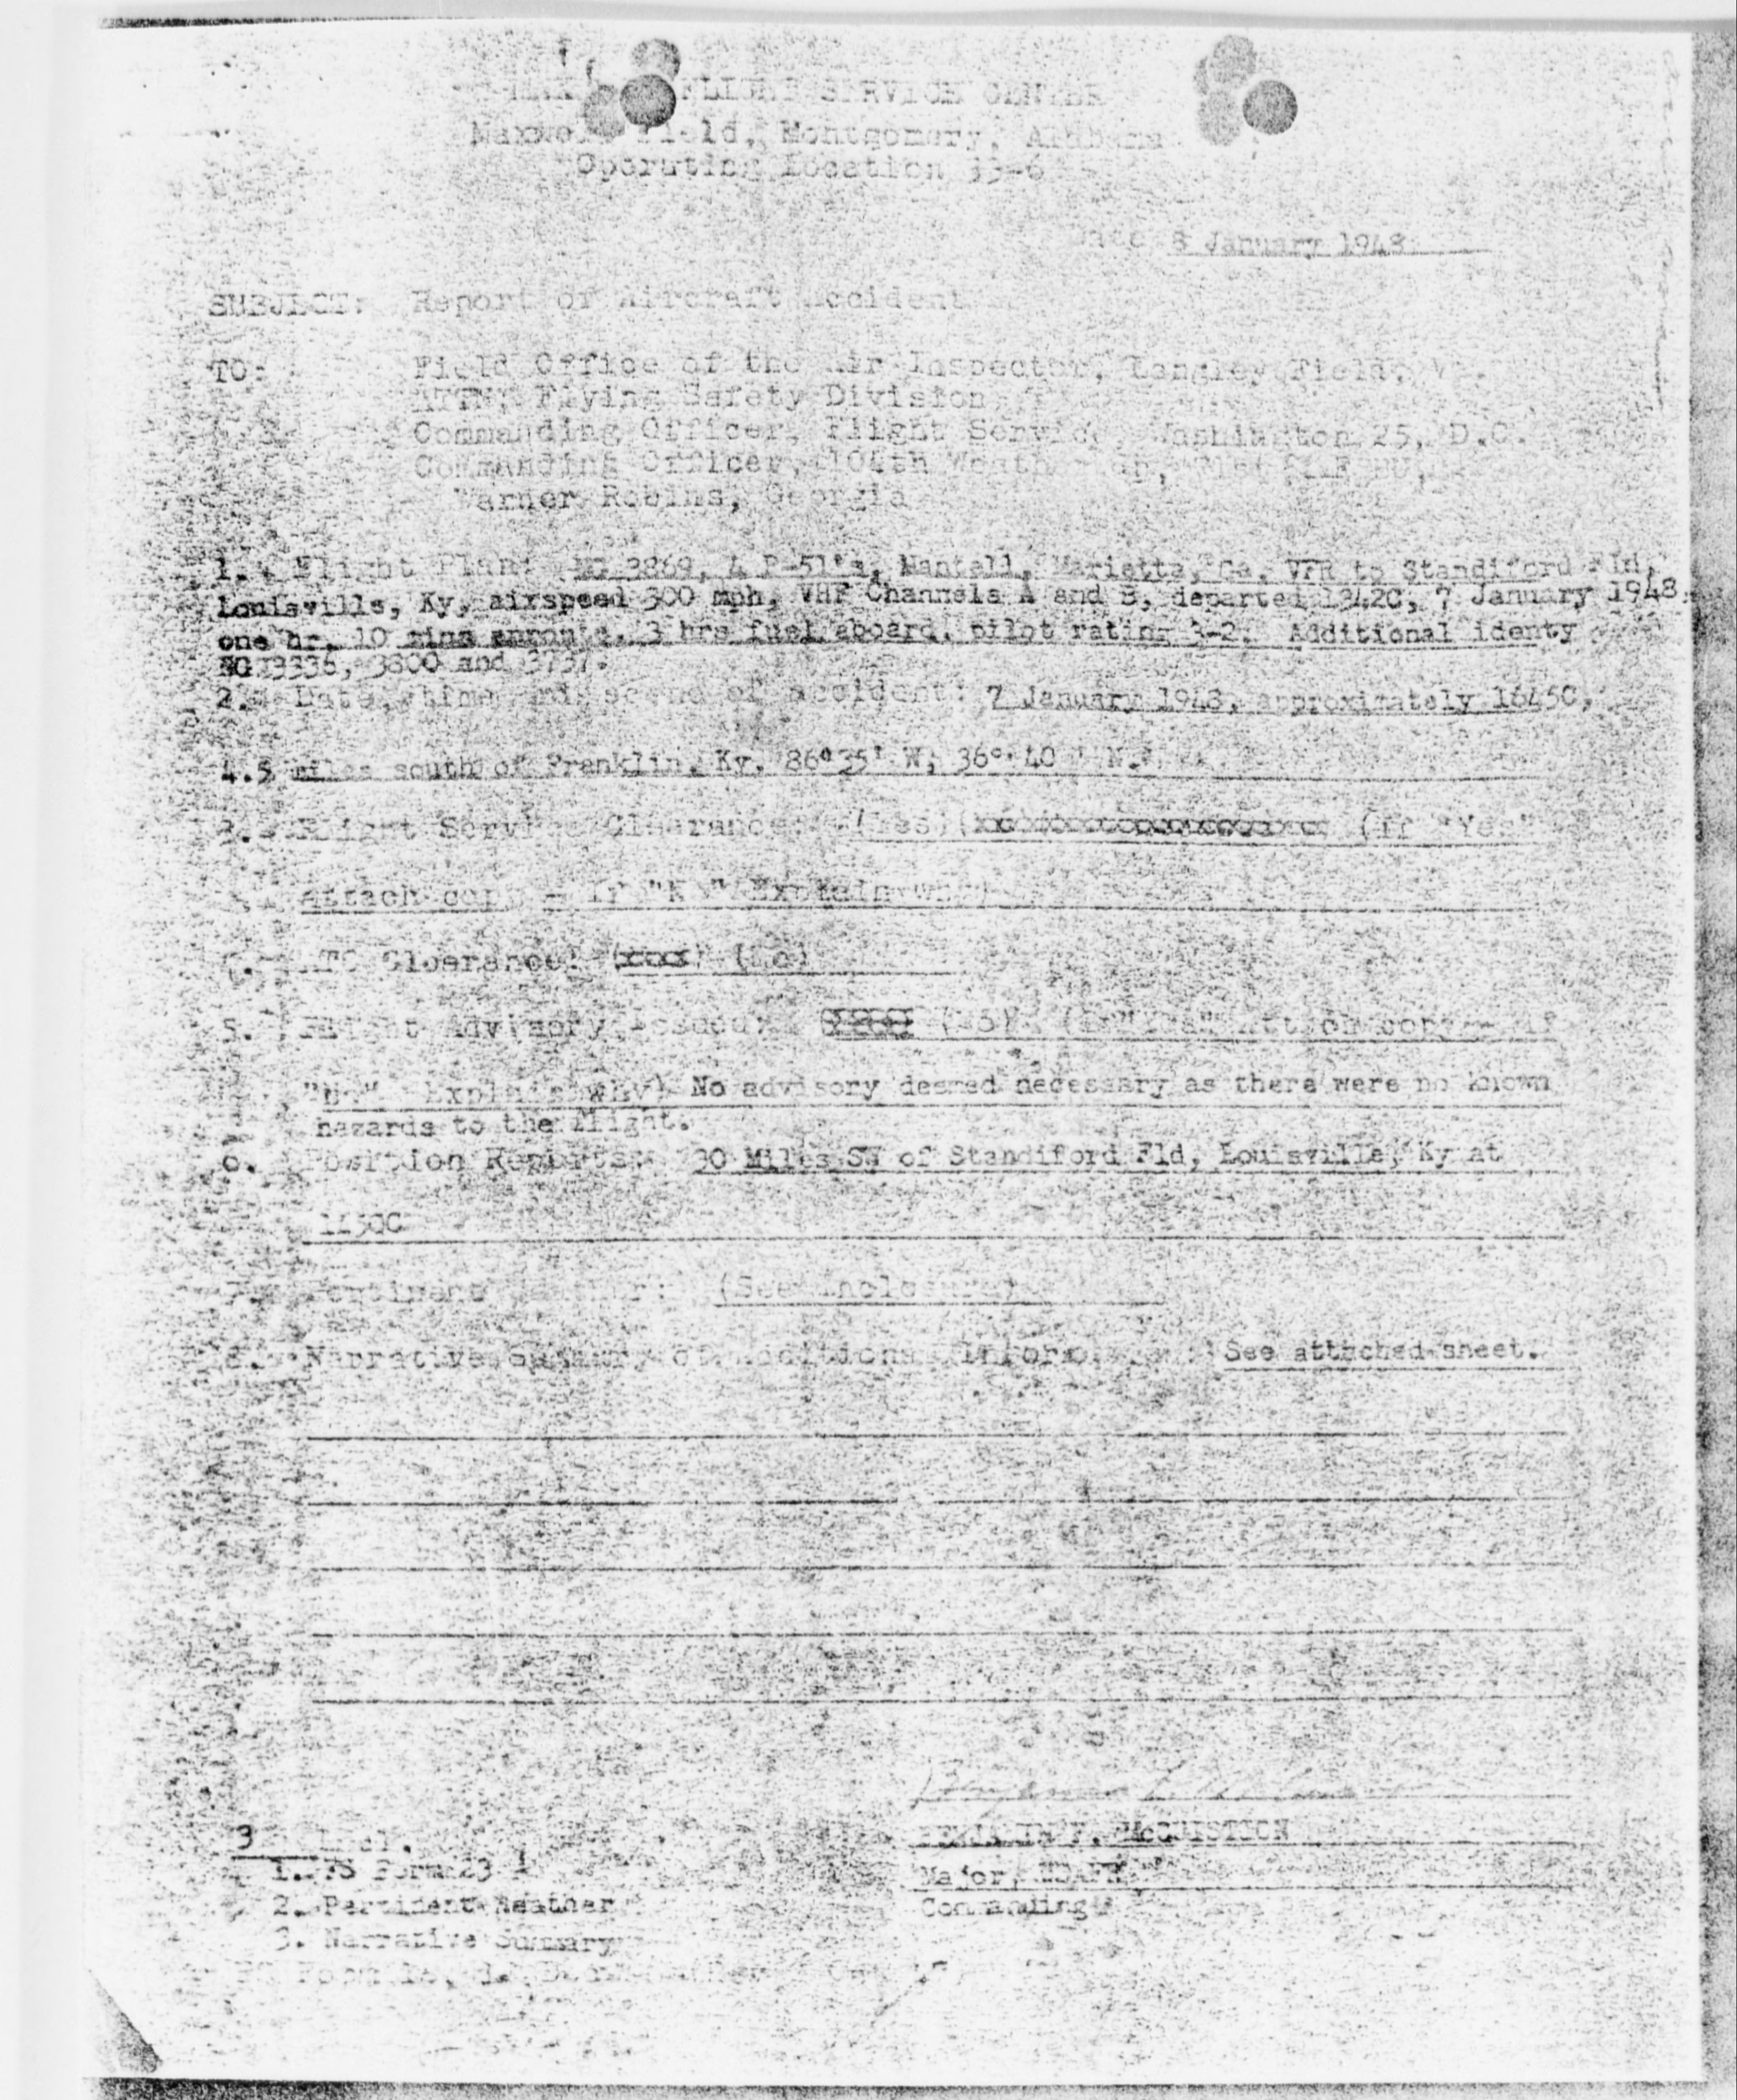 FLIGHT SERVICE CENTER
Maxwell Field, Montgomery, Alabama
Operating Location
Date 8 January 1948
SUBJECT: Report of Aircraft Accident
TO: Field Office of the Air Inspector, Langley Field, Va.
ATTN: Flying Safety Division
Commanding Officer, Flight Service, Washington 25, D.C.
Commanding Officer,
Warner Robins, Georgia
1. Flight Plan: NG 3869, 4 P-51's, Mantell, Marietta, Ga. VFR to Standiford Fld,
Louisville, Ky, airspeed 300 mph, VHF Channels A and B, departed 1342C, 7 January 1948,
one hr. 10 mins enroute, 3 hrs fuel aboard, pilot rating 3-2. Additional identy
NG 3336, 3800 and 3737.
2. Date, time and scene of accident: 7 January 1948, approximately 1645C,
4.5 miles south of Franklin, Ky. 86°35' W, 36° 40 ' N.
3. Flight Service Clearance: (Yes) (If "Yes"
Attach copy - If "No" Explain why)
4. ATC Clearance: (No)
5. Flight Advisory Issued: (No) (If "Yes" Attach copy - If
"No" Explain why) No advisory deemed necessary as there were no known
hazards to the flight.
6. Position Reports: 30 Miles SW of Standiford Fld, Louisville, Ky at
7. Pertinent Weather: (See Inclosure)
8. Narrative Summary of Additional Information: See attached sheet.
3 Incl.
1. FS Form 23
2. Pertinent Weather
3. Narrative Summary
BENJAMIN F. McQUISTION
Major, USAF
Commanding